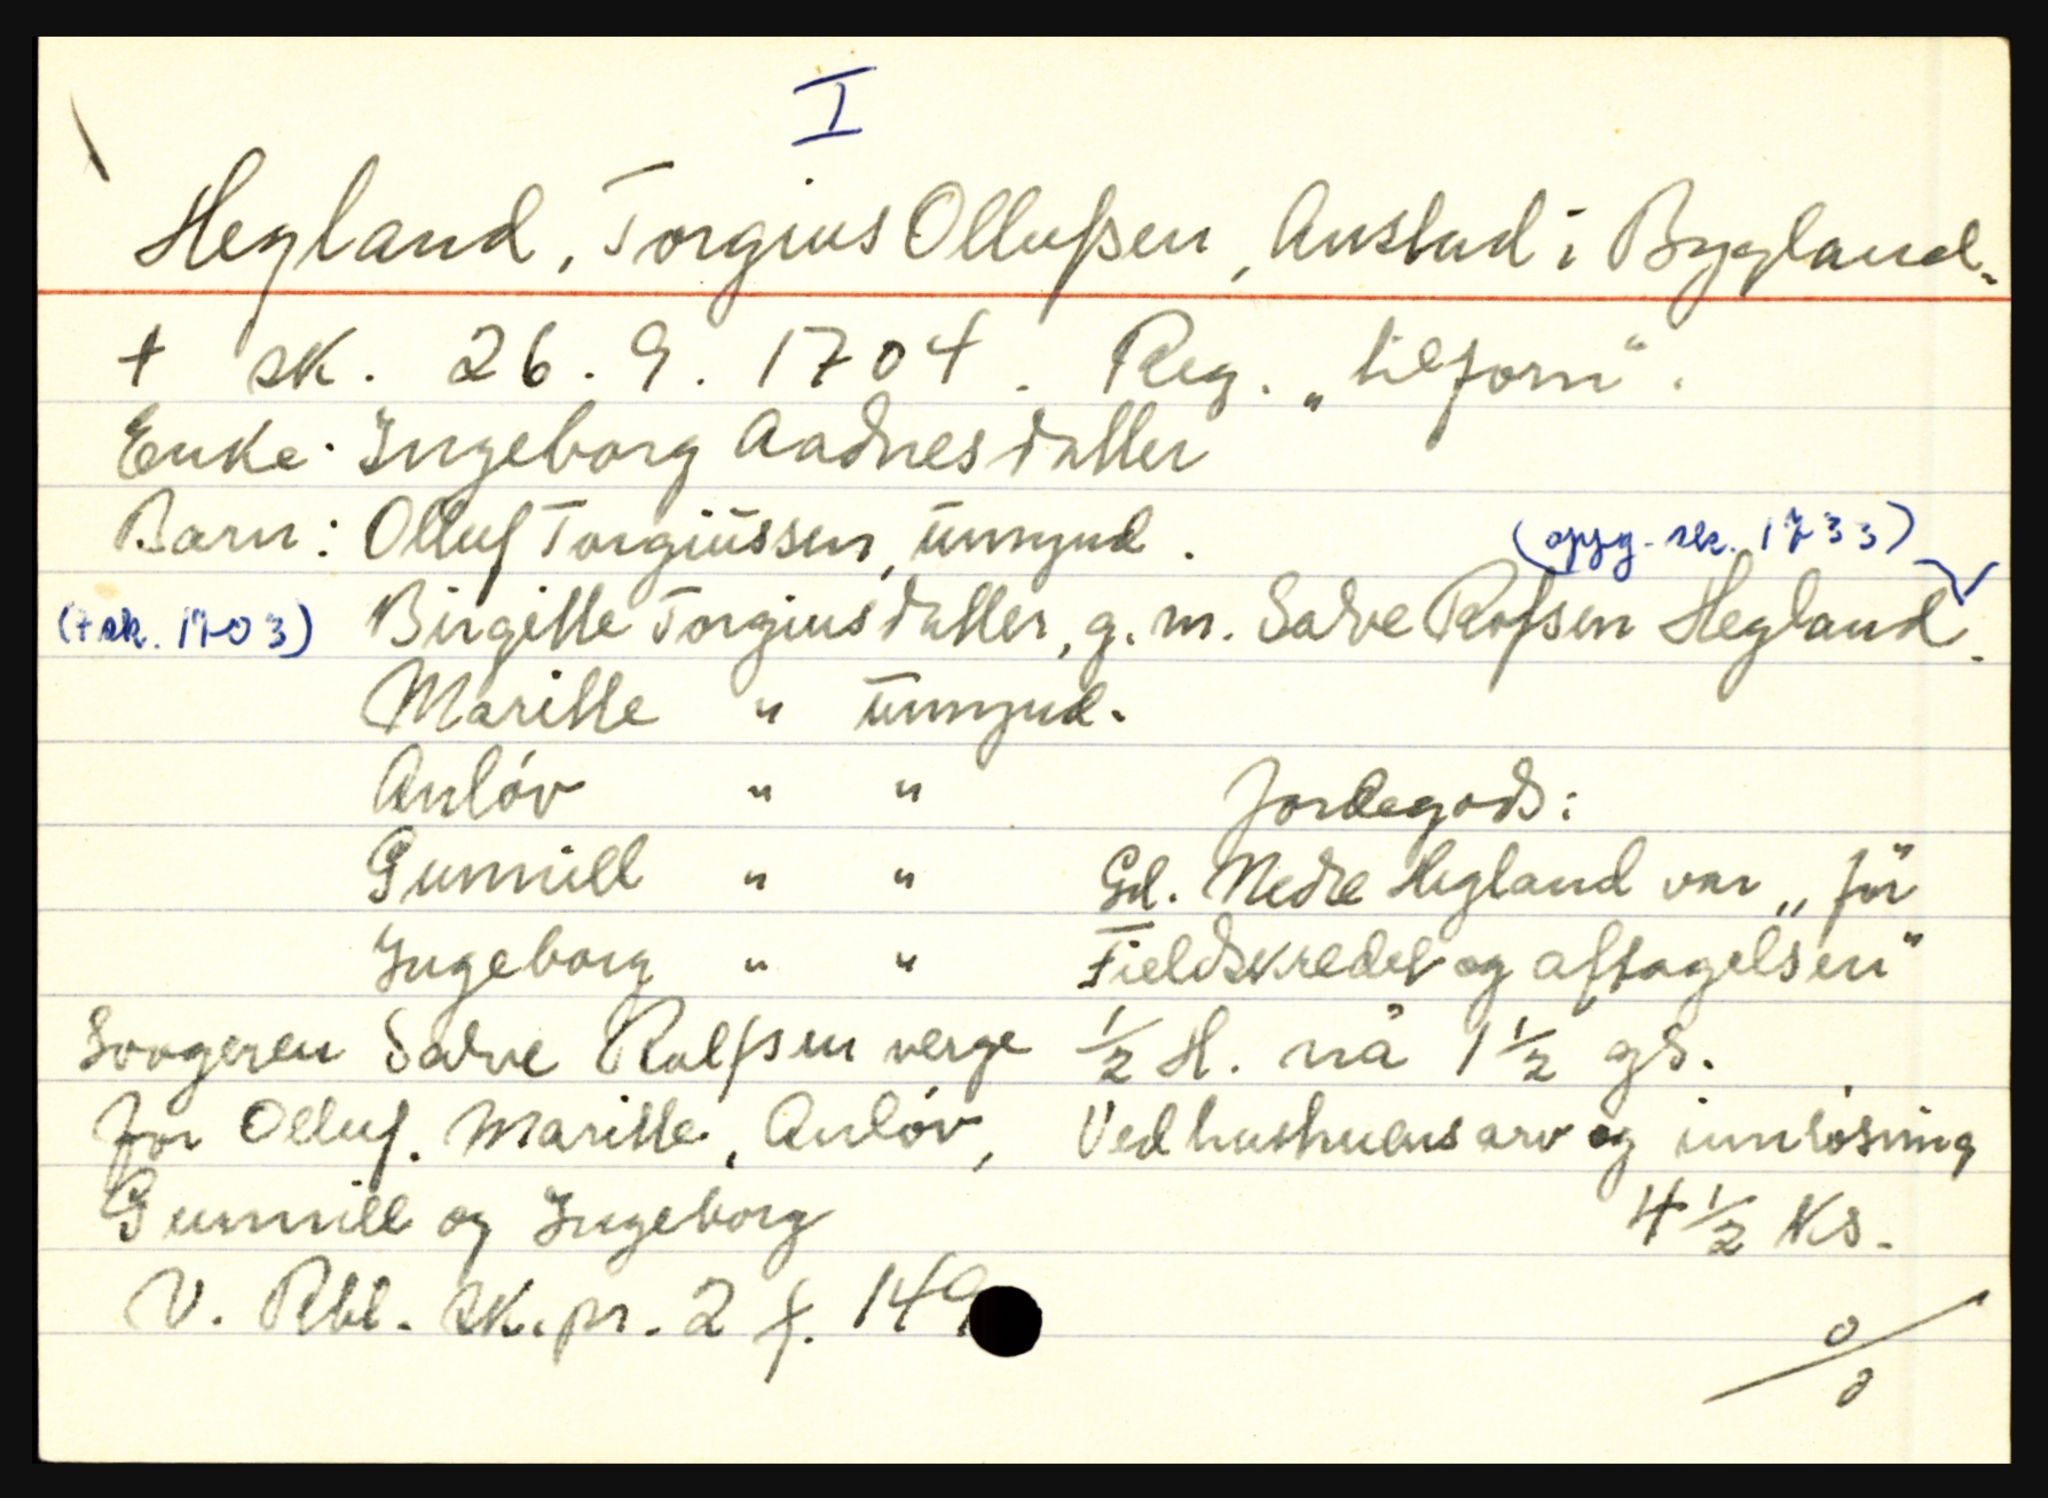 I
Hegland, Torgius Ollufsen, Austad i Bygland.
† sk. 26. 9. 1704. Reg. „tilforn“.
Enke: Ingeborg Aadnesdatter
Barn: Olluf Torgiüssen, ümynd.
(oppg. sk. 1733)
(† sk. 1703) Birgitte Torgiusdatter, g. m. Salve Rolfsen Hegland.
Maritte " ümynd.
Anlóv " "
Gunnill " "
Ingeborg " "
Svogeren Salve Rolfsen verge
for Olluf. Maritte, Anlóv,
Gunnill og Ingeborg
V. Rbl. sk. pr. 2 f. 149
Jordegods:
Gd. Nedre Hegland var „för
Fieldskredet og aftagelsen“
½ H. nå 1 ½ gs.
Ved hustruens arv og innlósning
4 ½ Ks.
0/0